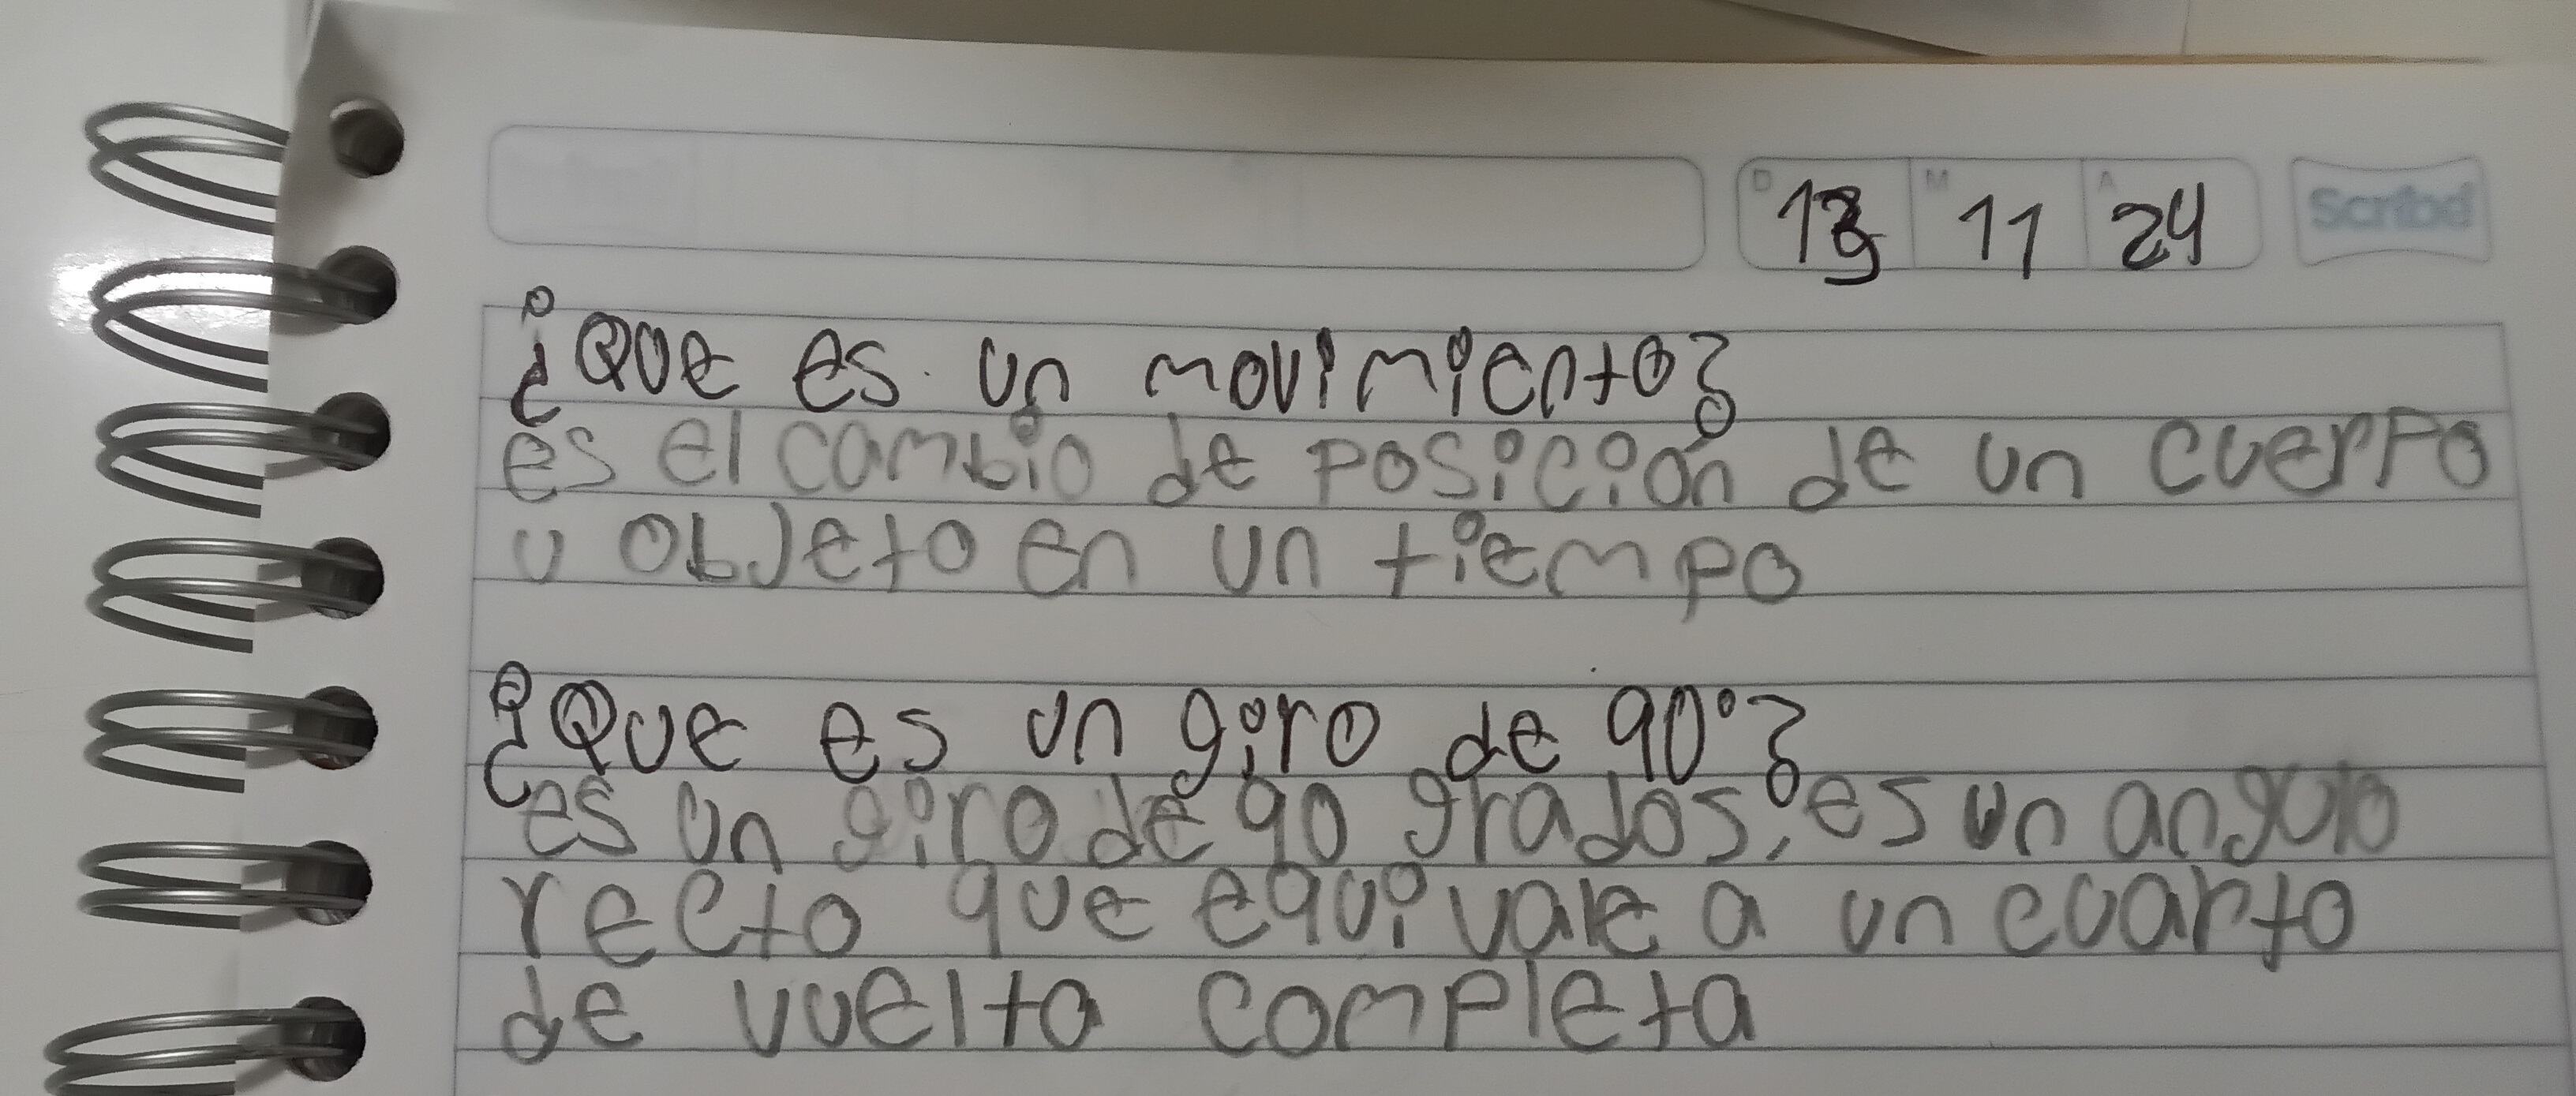 D 13 M 11 A 24 Scribe
¿Que es un movimiento?
es el cambio de posición de un cuerpo
u objeto en un tiempo
¿Que es un giro de 90°?
es un giro de 90 grados, es un angulo
recto que equivale a un cuarto
de vuelta completa